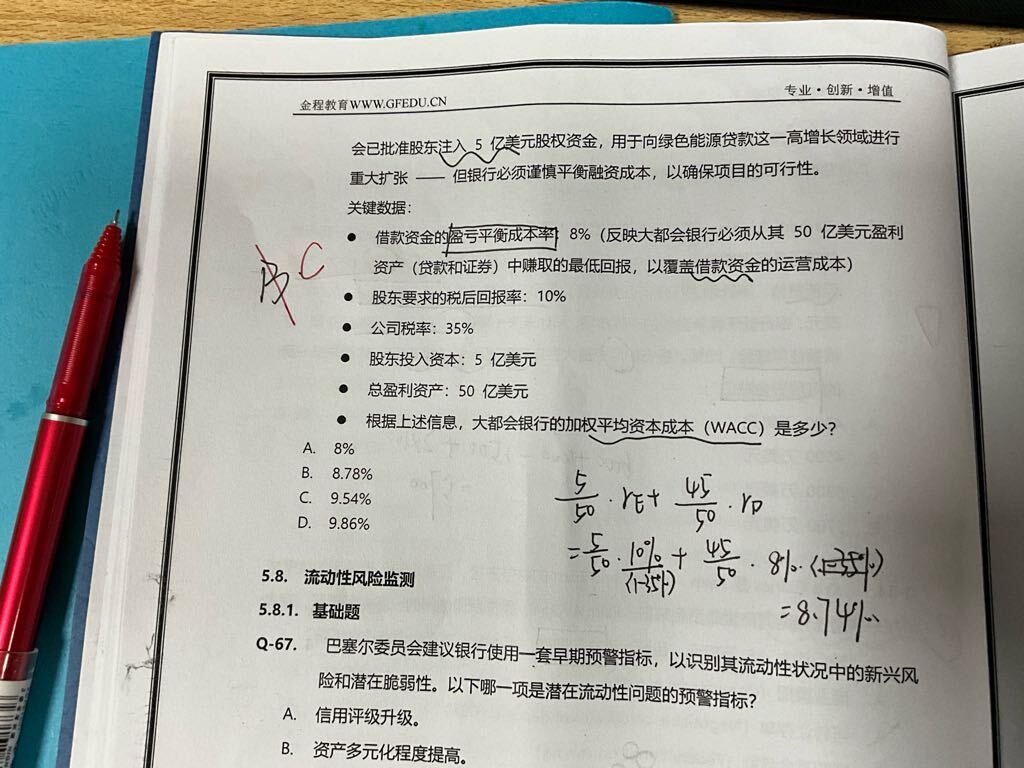 金程教育WWW.GFEDU.CN
专业·创新·增值
会已批准股东注入 5 亿美元股权资金，用于向绿色能源贷款这一高增长领域进行
重大扩张 —— 但银行必须谨慎平衡融资成本，以确保项目的可行性。
关键数据：
● 借款资金的盈亏平衡成本率：8%（反映大都会银行必须从其 50 亿美元盈利
资产（贷款和证券）中赚取的最低回报，以覆盖借款资金的运营成本）
B C
● 股东要求的税后回报率：10%
● 公司税率：35%
● 股东投入资本：5 亿美元
● 总盈利资产：50 亿美元
● 根据上述信息，大都会银行的加权平均资本成本（WACC）是多少？
A. 8%
B. 8.78%
C. 9.54%
D. 9.86%
5/50 · rE + 45/50 · rD
= 5/50 · 10%/(1-35%) + 45/50 · 8% · (1-35%)
= 8.74%
5.8. 流动性风险监测
5.8.1. 基础题
Q-67. 巴塞尔委员会建议银行使用一套早期预警指标，以识别其流动性状况中的新兴风
险和潜在脆弱性。以下哪一项是潜在流动性问题的预警指标？
A. 信用评级升级。
B. 资产多元化程度提高。